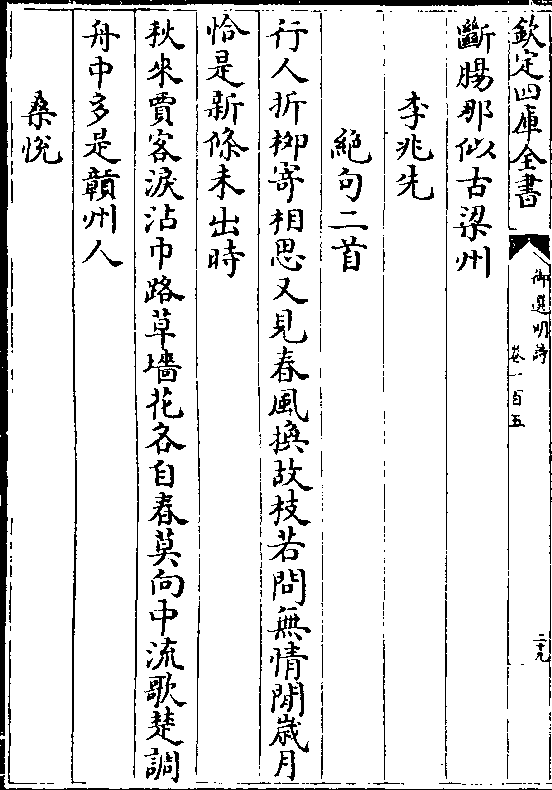 欽定四庫全書
御選明詩
卷一百五
二十九
斷腸那似古梁州
李兆先
絕句二首
行人折栁寄相思又見春風換故枝若問無情閒嵗月
恰是新條未出時
秋來賈客淚沾巾路草墻花各自春莫向中流歌楚調
舟中多是贛州人
桑悅